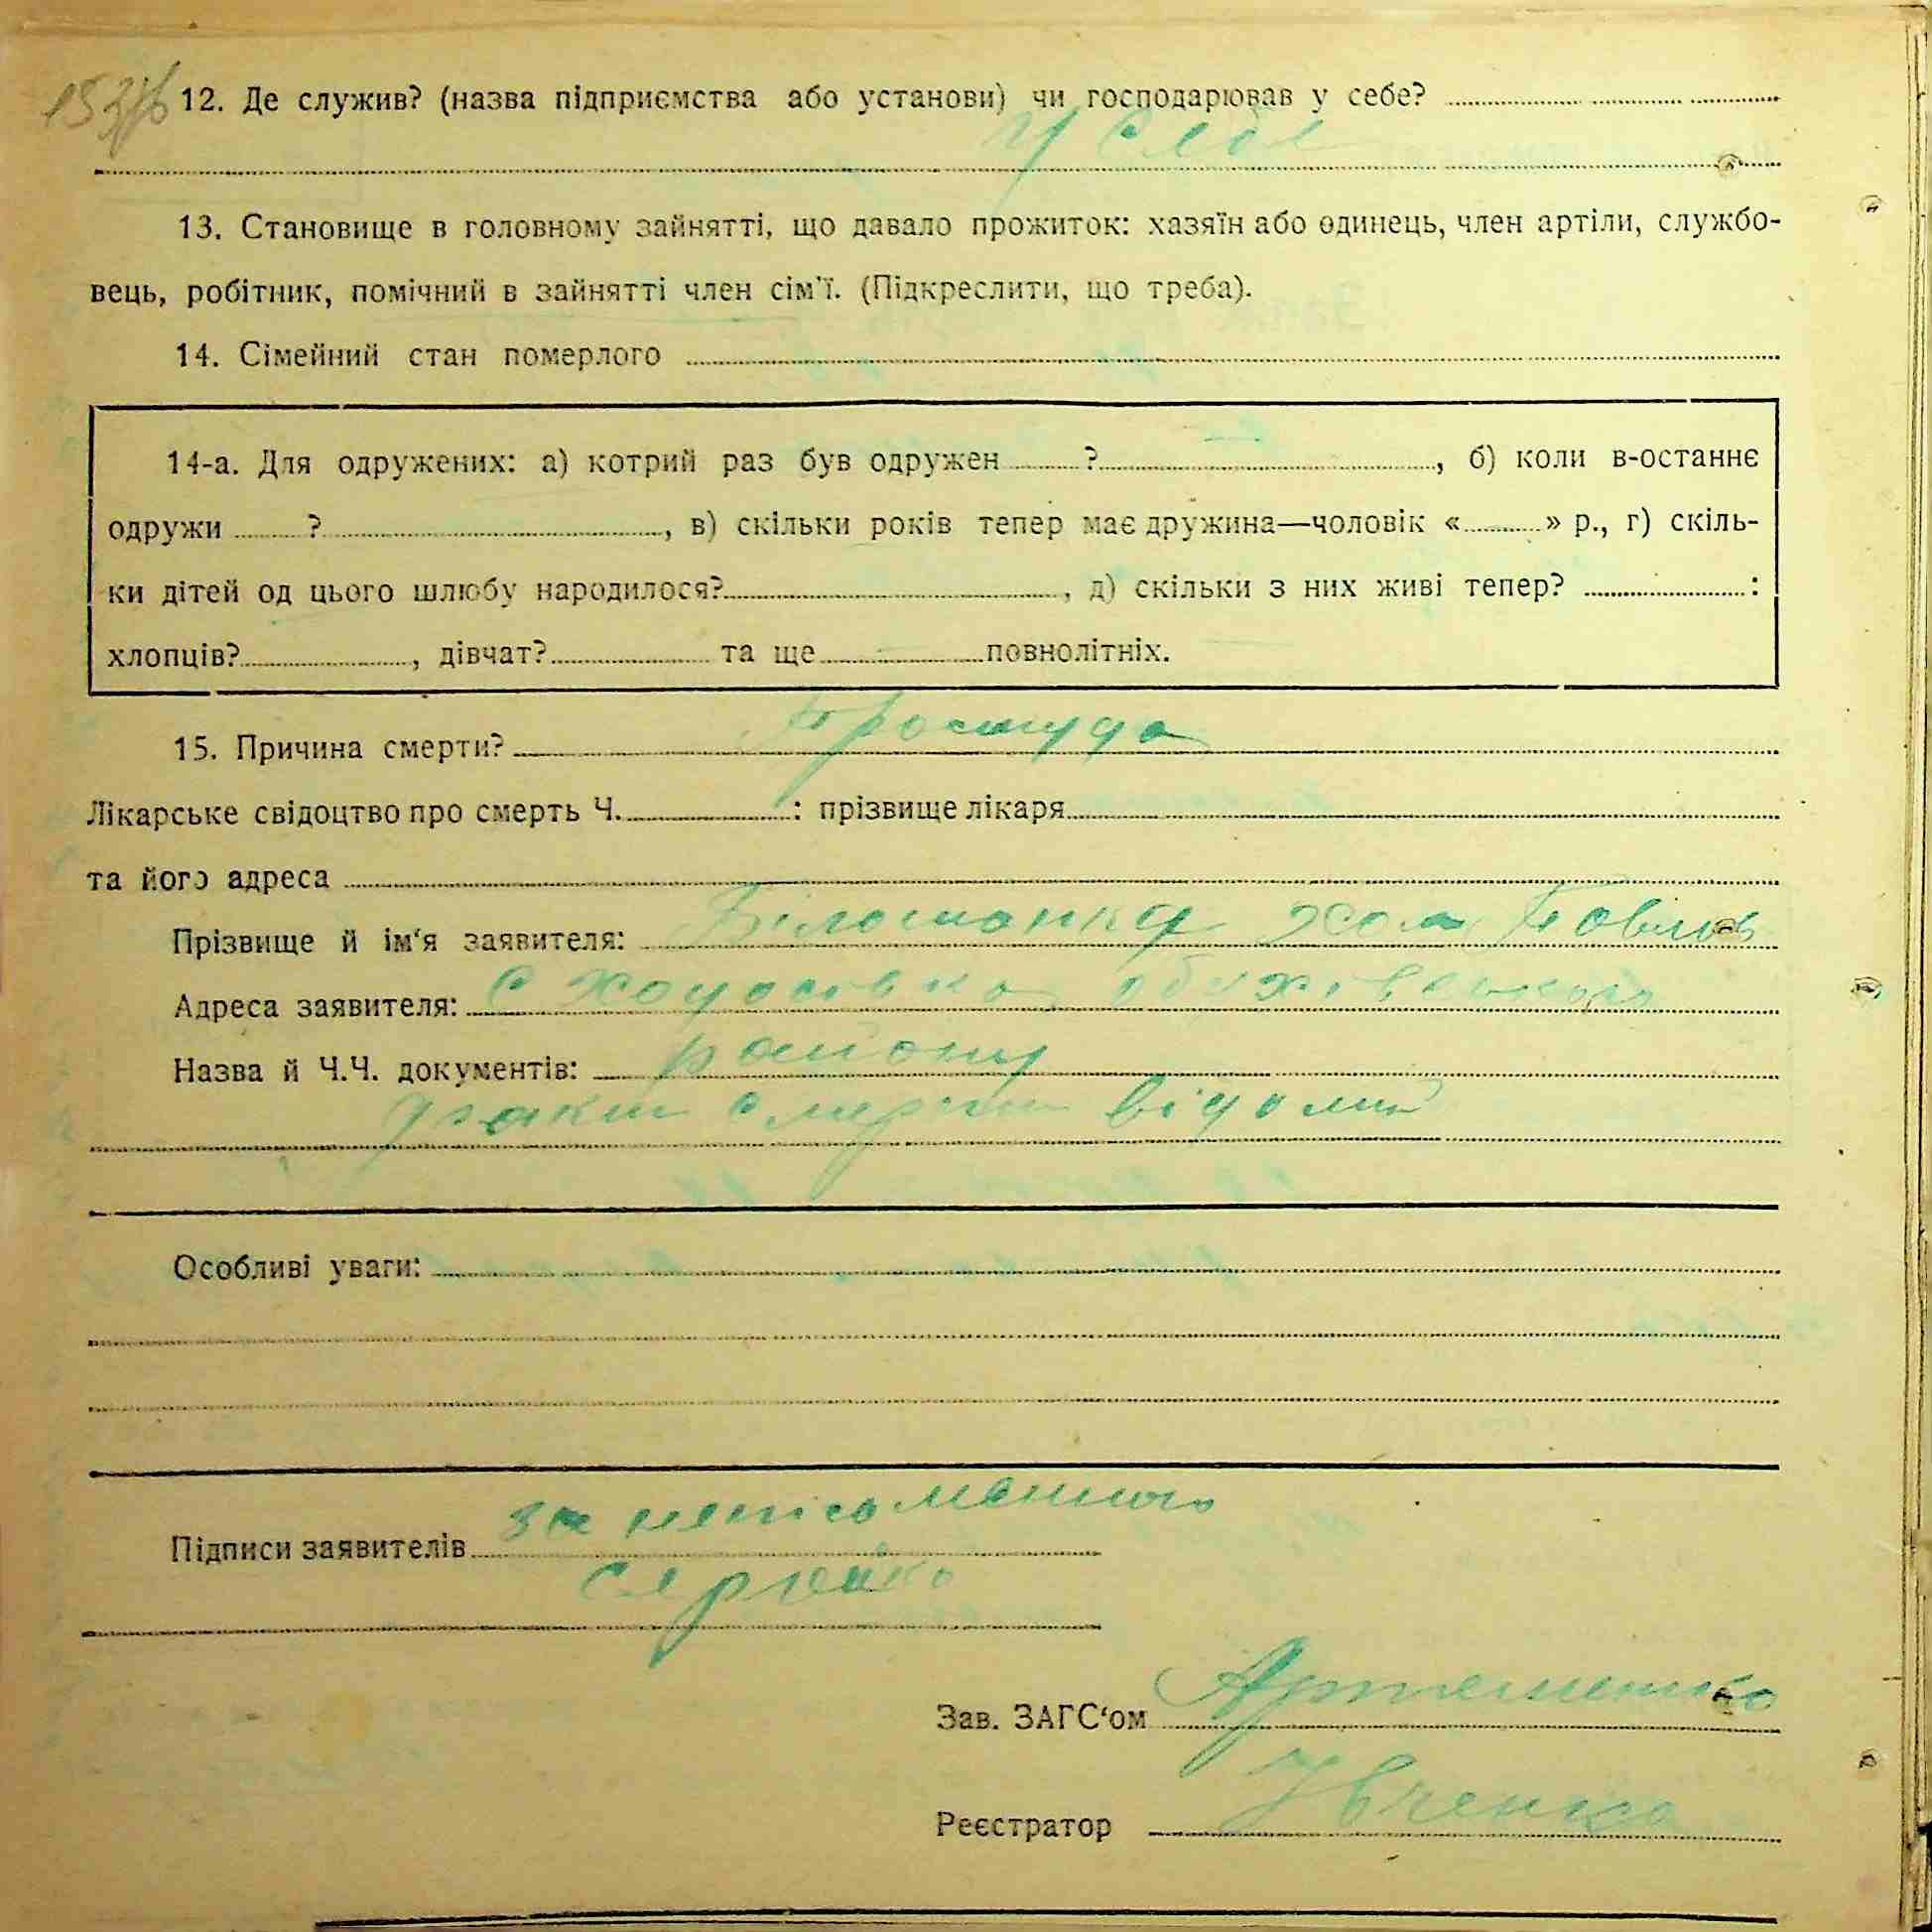 12. Де служив? (назва підприємства або установи) чи господарював у себе?
у себе
13. Становище в головному зайнятті, що давало прожиток: хазяїн або одинець, член артіли, службо-
вець, робітник, помічний в зайнятті член сім'ї. (Підкреслити, що треба).
14. Сімейний стан померлого
14-а. Для одружених: а) котрий раз був одружен ? , б) коли в-останнє
одружи ? , в) скільки років тепер має дружина—чоловік « » р., г) скіль-
ки дітей од цього шлюбу народилося? , д) скільки з них живі тепер? :
хлопців? , дівчат? та ще повнолітніх.
15. Причина смерти? Простуда
Лікарське свідоцтво про смерть Ч. : прізвище лікаря
та його адреса
Прізвище й ім'я заявителя: Білошапка Хома
Адреса заявителя: с Ходосовка
Назва й Ч.Ч. документів: району
факт смерти відомий
Особливі уваги:
Підписи заявителів за неписьменного
Сергієнко
Зав. ЗАГС'ом Артеменко
Реєстратор Івченко